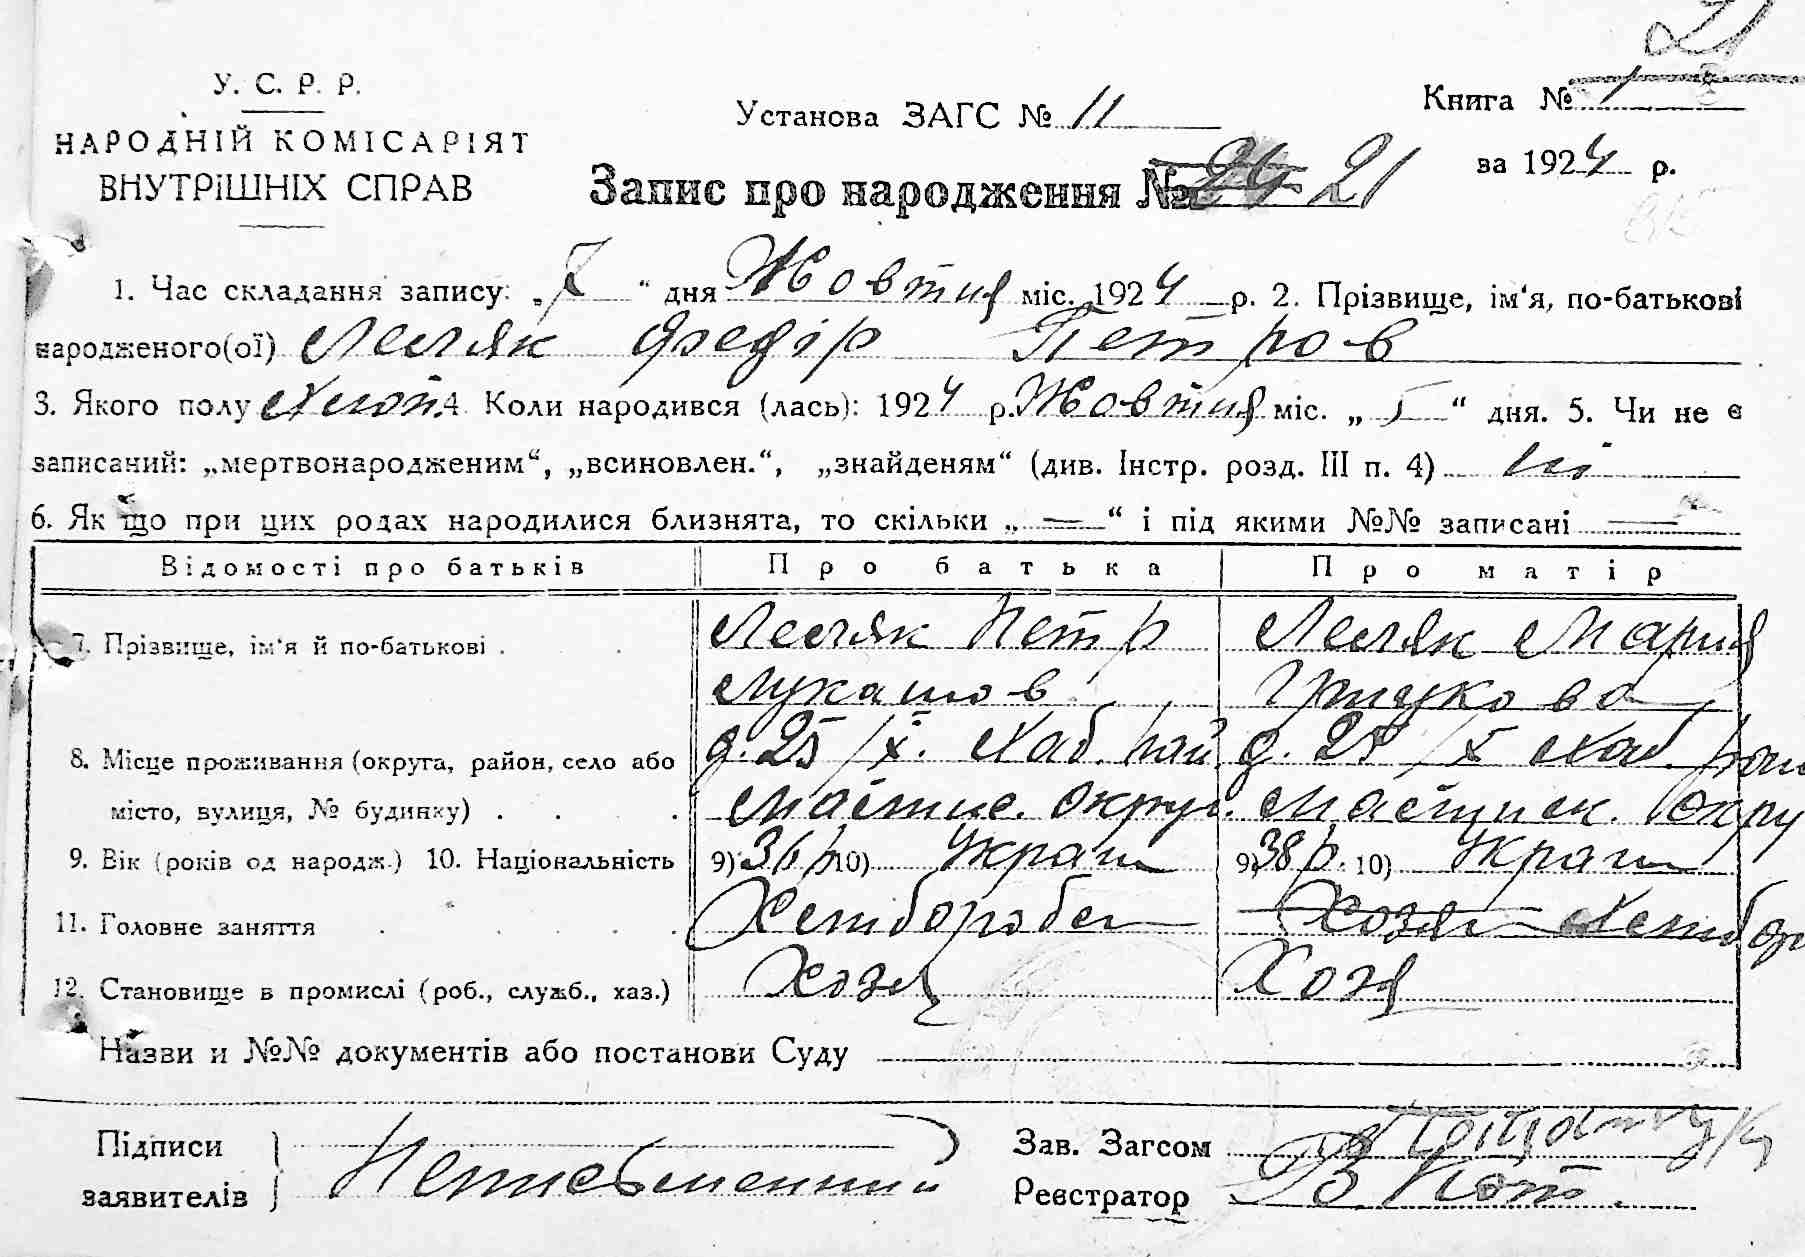 21
У. С. Р. Р.
Установа ЗАГС № 11
Книга № 1
НАРОДНІЙ КОМІСАРІЯТ
за 1924 р.
ВНУТРІШНІХ СПРАВ
Запис про народження № 24 21
1. Час складання запису: „7“ дня Жовтня міс. 1924 р. 2. Прізвище, ім'я, по-батькові
народженого(ої) Федір Петров
3. Якого полу Хлоп. 4 Коли народився (лась): 1924 р. Жовтня міс. „5“ дня. 5. Чи не є
записаний: „мертвонародженим“, „всиновлен.“, „знайденям“ (див. Інстр. розд. III п. 4) ні
6. Як що при цих родах народилися близнята, то скільки „—“ і під якими №№ записані —
Відомості про батьків Про батька Про матір
7. Прізвище, ім'я й по-батькові . . Петр Мария
Лукашов
8. Місце проживання (округа, район, село або д. 25 /X. Хаб. рай. д. 25 /X Хаб. рай
місто, вулиця, № будинку) . . .
9. Вік (років од народж.) 10. Національність 9) 36 р. 10) Украин 9) 38 р. 10) Украин
11. Головне заняття . . . . Хлибороб Хозя Хлибор
12. Становище в промислі (роб., служб., хаз.) Хозя Хозя
Назви и №№ документів або постанови Суду
Підписи
заявителів
Неписьменний
Зав. Загсом
Реєстратор